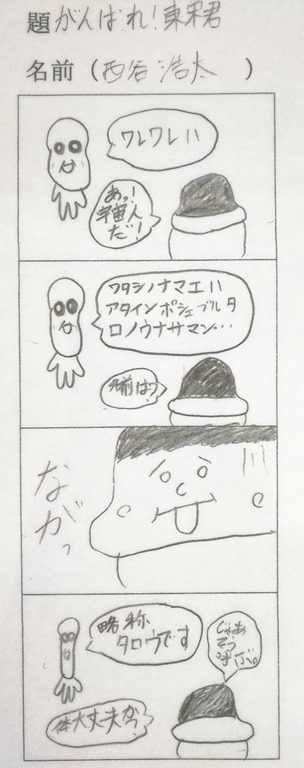 題がんばれ！東宋君
名前（西谷浩太　）
ワレワレハ
あっ！
宇宙人
だ！
ワタシノナマエハ
アタインポシェブルタ
ロノウナサマン…
名前は？
ながっ
略称
タロウです
じゃあ
そう
呼ぶ。
体大丈夫か？